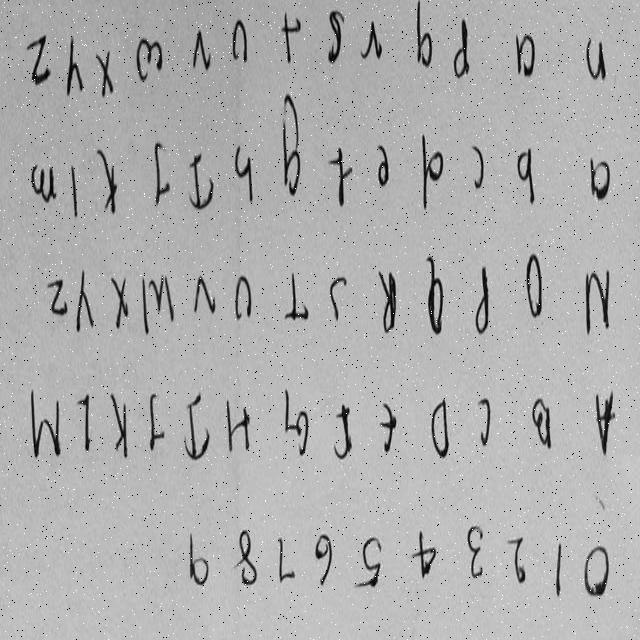 0 1 2 3 4 5 6 7 8 9
A B C D E F G H I J K L M
N O P Q R S T U V W X Y Z
a b c d e f g h i j k l m
n o p q r s t u v w x y z